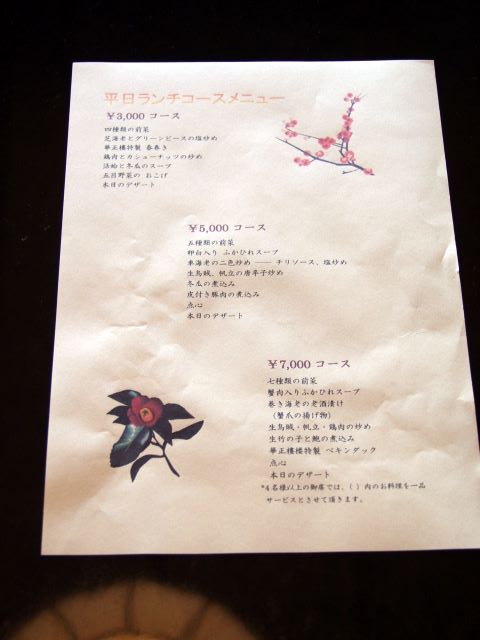 平日ランチコースメニュー
￥3,000 コース
四種類の前菜
芝海老とグリーンピースの塩炒め
華正樓特製 春巻き
鶏肉とカシューナッツの炒め
活蛤と冬瓜のスープ
五目野菜の おこげ
本日のデザート
￥5,000 コース
五種類の前菜
卵白入り ふかひれスープ
車海老の二色炒め ―― チリソース、塩炒め
生烏賊、帆立の唐辛子炒め
冬瓜の煮込み
皮付き豚肉の煮込み
点心
本日のデザート
￥7,000 コース
七種類の前菜
蟹肉入りふかひれスープ
巻き海老の老酒漬け
（蟹爪の揚げ物）
生烏賊・帆立・鶏肉の炒め
生竹の子と鮑の煮込み
華正樓特製 ペキンダック
点心
本日のデザート
*4名様以上の御席では、( ) 内のお料理を一品
サービスとさせて頂きます。